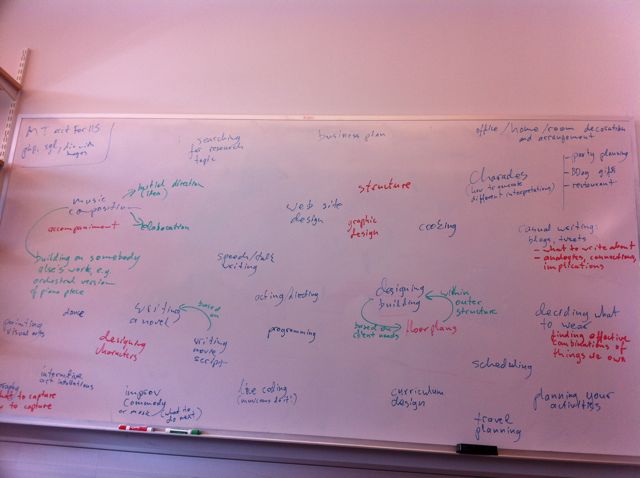 searching
for research
topic
business plan
office/home/room decoration
and arrangement
party planning
BDay gifts
restaurant
charades
(how to
different interpretations)
music
composition
initial direction
(idea)
elaboration
accompaniment
building on somebody
else's work, e.g.
orchestral version
of piano piece
web site
design
structure
graphic
design
cooking
casual writing:
blogs, tweets
- what to write about
- analogies, connections,
implications
speech/talk
writing
acting/directing
designing
building
within
outer
structure
based on
client needs
floor plans
deciding what
to wear
finding effective
combinations of
things we own
dance
painting
visual arts
writing
a novel
based on
designing
characters
writing
movie
script
programming
scheduling
interactive
art installations
what to capture
to capture
improv
(commedy
or music)
(what to
do next)
live coding
(musicians do it!)
curriculum
design
travel
planning
planning your
activities